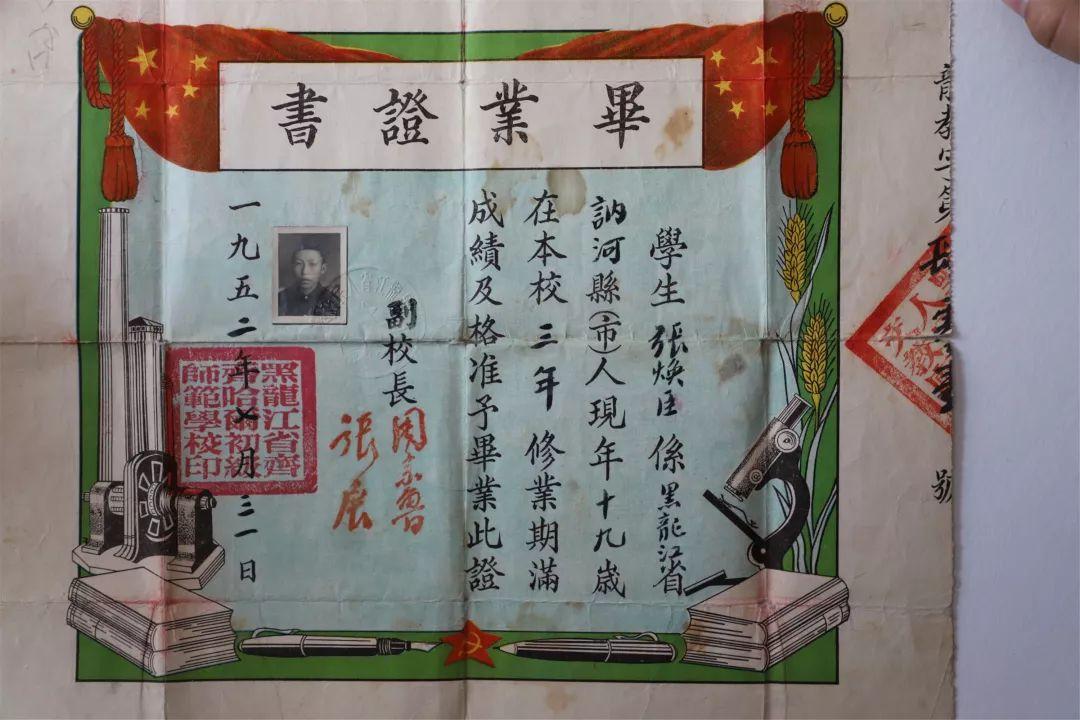 畢業證書
學生張煥臣係黑龍江省
訥河縣(市)人現年十九歲
在本校三年修業期滿
成績及格准予畢業此證
副校長
張展
一九五二年七月三一日
黑龍江省齊
齊哈爾初級
師範學校印
龍教字第
號